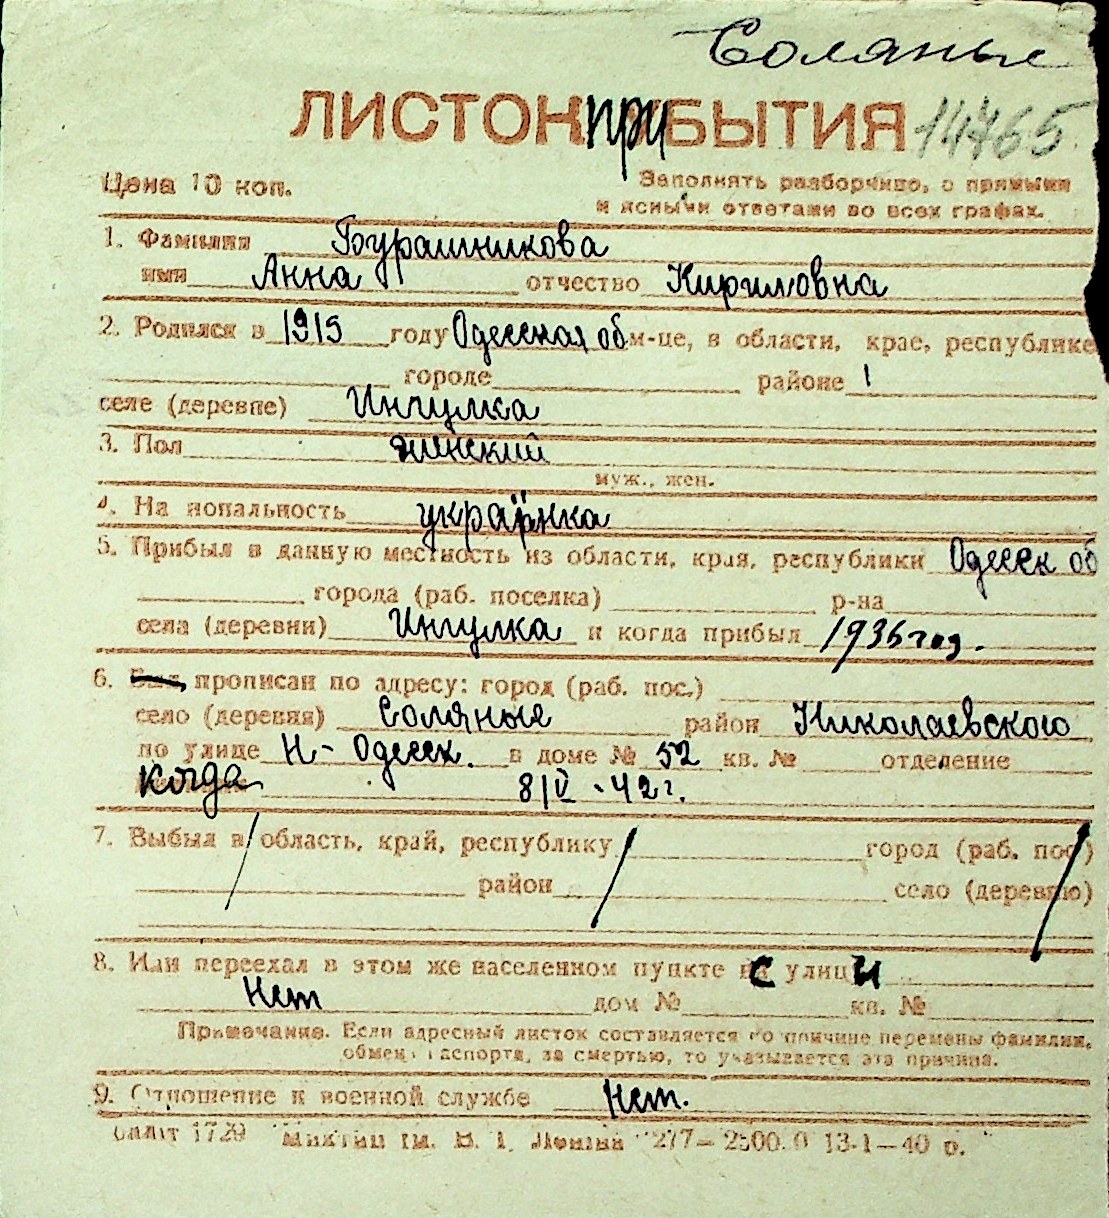 Соляные
ЛИСТОК ПРИБЫТИЯ 14765
Цена 10 коп. Заполнять разборчиво, с прямыми
и ясными ответами во всех графах.
1. Фамилия Бурашникова
имя Анна отчество Кириловна
2. Родился в 1915 году Одесская об м-це, в области, крае, республике
городе районе
селе (деревне) Ингулка
3. Пол женский
муж., жен.
4. Национальность украинка
5. Прибыл в данную местность из области, края, республики Одесск об
города (раб. поселка) р-на
села (деревни) Ингулка и когда прибыл 1936 год.
6. прописан по адресу: город (раб. пос.)
село (деревня) Соляные район Николаевского
по улице Н-Одесск. в доме № 52 кв. № отделение
когда 8/V-42 г.
7. Выбыл в область, край, республику город (раб. пос)
район село (деревню)
8. Или переехал в этом же населенном пункте с улицы
Нет дом № кв. №
Примечание. Если адресный листок составляется по причине перемены фамилии,
обмен паспорта, за смертью, то указывается эта причина.
9. Отношение к военной службе Нет.
1729 им. В. І. Леніна 277—2500.0 13-1—40 р.